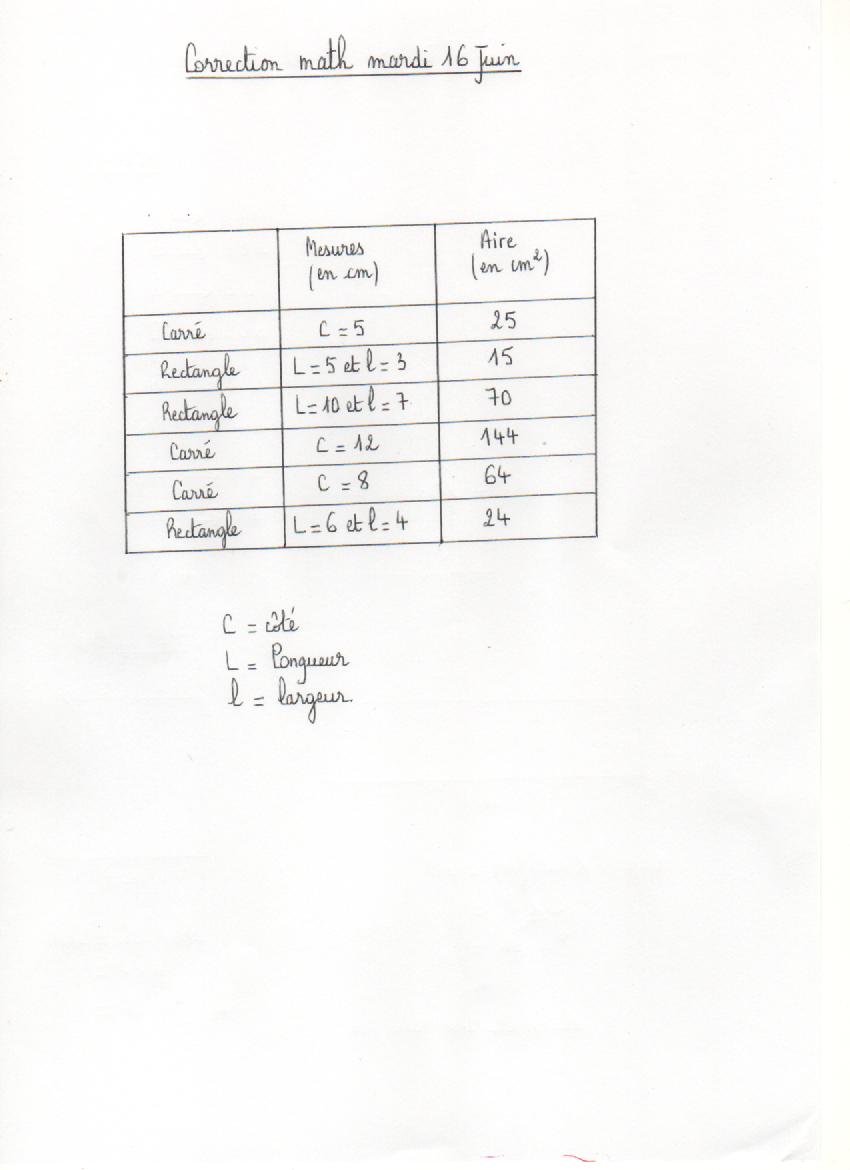 Correction math mardi 16 Juin
Mesures
(en cm)
Aire
(en cm²)
Carré C = 5 25
Rectangle L = 5 et l = 3 15
Rectangle L = 10 et l = 7 70
Carré C = 12 144
Carré C = 8 64
Rectangle L = 6 et l = 4 24
C = côté
L = Longueur
l = largeur.